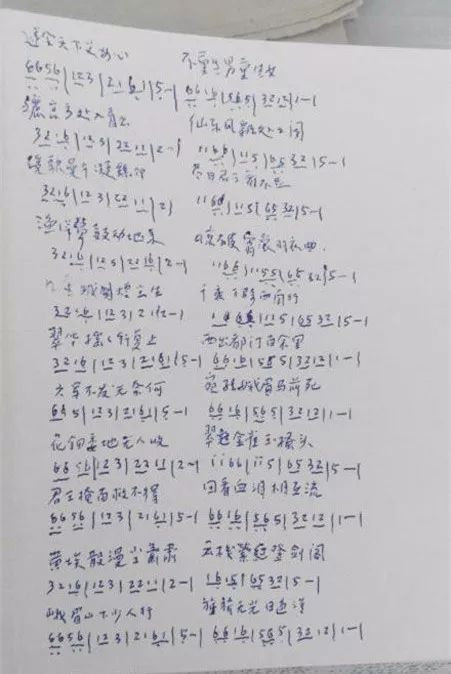 遂令天下父母心 不重生男重生女
6656|123|2161|5-| 6616|565|3212|1-|
骊宫高处入青云 仙乐风飘处处闻
3216|123|2211|2-| 1166|115|6532|5-|
缓歌曼午凝丝竹 尽日君王看不足
3216|123|2211|2| 1166|115|6532|5-|
渔阳鼙鼓动地来 惊破霓裳羽衣曲
3216|123|2216|2-| 1166|1155|6532|5-|
九重城阙烟尘生 千乘万骑西南行
3216|123|21|2-|
翠华摇摇行复止 西出都门百余里
3216|123|2161|5-| 6616|565|3212|1-|
六军不发无奈何 宛转蛾眉马前死
123|2161|5-| 6616|565|3212|1-|
花钿委地无人收 翠翘金雀玉搔头
6656|123|2211|2-| 1166|115|6532|5-
君王掩面救不得 回看血泪相和流
6656|123|2161|5-| 6616|565|3212|1-|
黄埃散漫 萧索 云栈萦纡登剑阁
3216|123|2211|2-| 1615|6532|5-|
峨眉山下少人行 旌旗无光日色薄
6656|123|2161|5-| 6616|565|3212|1-|